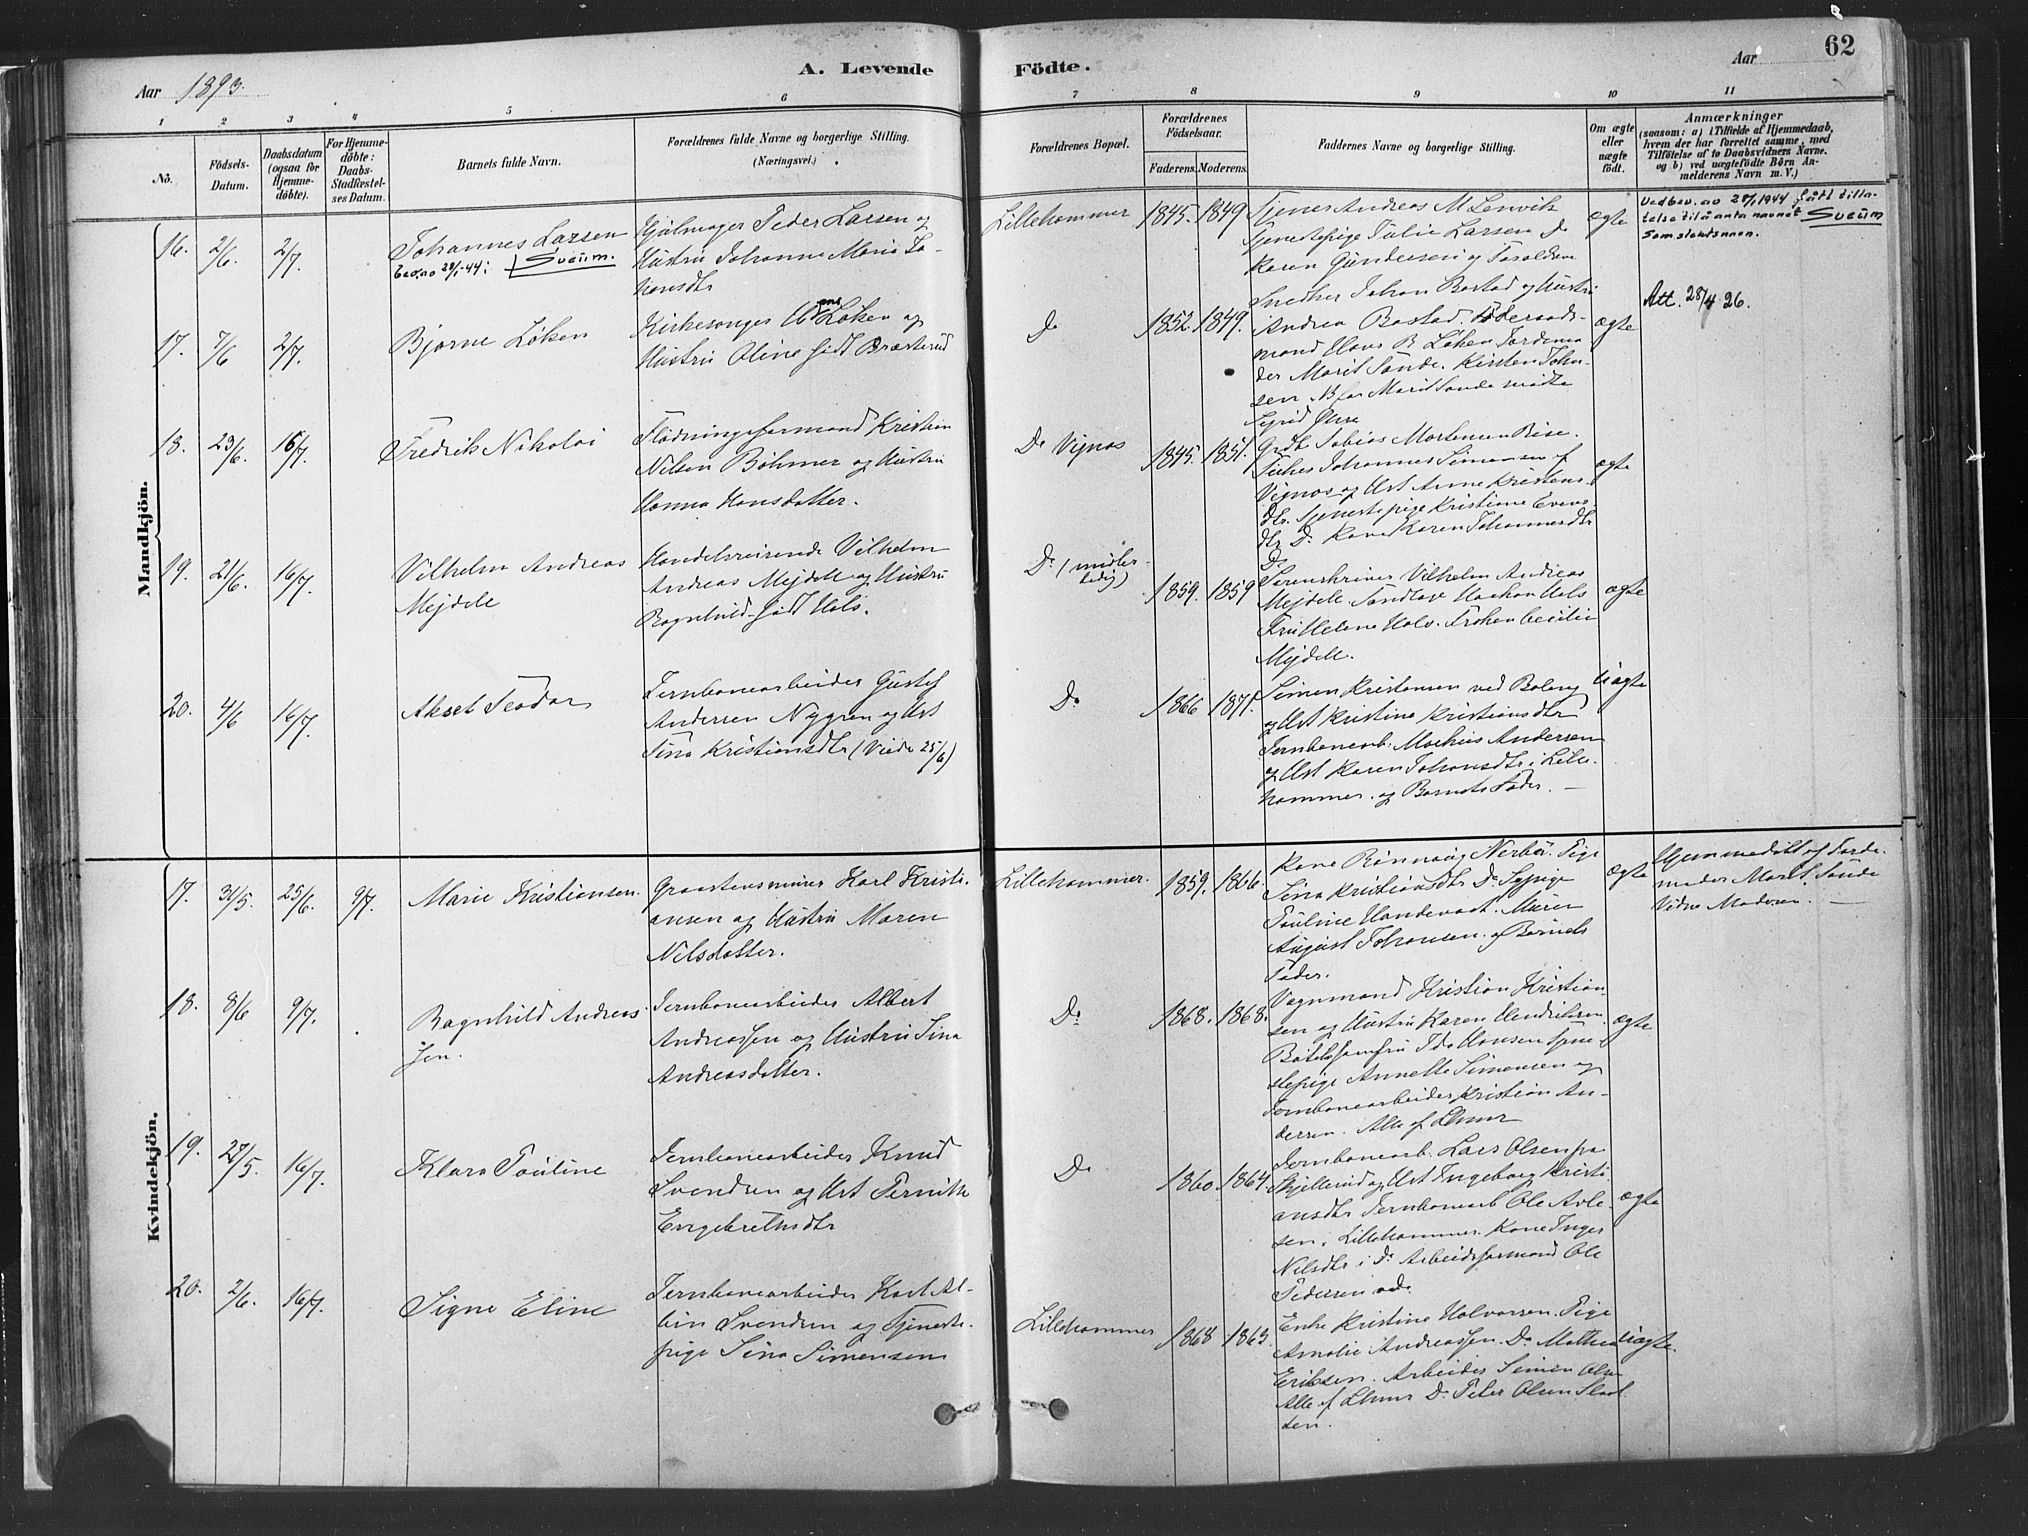 Aar 1893.
A. Levende
Födte.
Aar
62
1
2
3
4
5
6
7
8
9
10
11
No.
Födsels-
Datum.
Daabsdatum
(ogsaa for
Hjemme-
döbte).
For Hjemme-
döbte:
Daabs-
Stadfæstel-
ses Datum.
Barnets fulde Navn.
Forældrenes fulde Navne og borgerlige Stilling.
(Næringsvei.)
Forældrenes Bopæl.
Forældrenes
Födselsaar.
Faderens.
Moderens.
Faddernes Navne og borgerlige Stilling.
Om ægte
eller
uægte
födt.
Anmærkninger
(saasom: a) i Tilfælde af Hjemmedaab,
hvem der har forrettet samme, med
Tilföielse af to Daabsvidners Navne.
og b) ved uægtefödte Börn An-
melderens Navn m. V.)
Mandkjön.
16.
2/6.
2/7.
Johannes Larsen
Bev. av 28/1-44: Sveum.
Hjulmager Peder Larsen og
Hustru Johanne Marie Jo-
hansdtr
Lillehammer
1845.
1849
Tjener Andreas M Lenvik
Tjenestepige Julie Larsen Do
Karen Gundersen og Faraldene
ægte
Ved bev. av 28/1 1944 fått tilla-
telse til å anta navnet Sveum
som slektsnavn.
17.
7/6
2/7.
Bjarne Løken
Kirkesanger Løken og
Hustru Oline født Bræsterud
Do
1852.
1849.
Snedker Johan Bastad og Hustru
Andrea Bastad. Föderaads-
mand Hans B Løken Jordemo-
der Maret Sande. Kirsten Joha-
sen. Marit Sande mødte
Sigrid
ægte
Att. 28/4 26.
18.
23/6.
16/7.
Fredrik Nikolai
Flødningsformand Kristian
Nilsen Bøhmer og Hustru
Hanna Hansdatter.
Do Vignes
1845.
1851.
Grdb. Tobias Mortensen Rise.
Johannes Simensen af
Vignes og Hust Anne Kristens-
dtr. Tjenestepige Kristiane Evens-
dtr Do Kone Karen Johannesdtr
Do
ægte
19.
21/6.
16/7.
Vilhelm Andreas
Mejdele
Handelsreisende Vilhelm
Andreas Mejdele og Hustru
Ragnhild født Hals.
Do (midler-
tidig)
1859.
1859
Sorenskriver Vilhelm Andreas
Mejdele. Haakon Hals
Fru Helene Hals. Frøken Cecilie
Mejdele.
ægte
20.
4/6
16/7.
Aksel Teodor
Jernbanearbeider Gustef
Andersen Nygren og Hust
Sina Kristiansdtr (Viede 25/6)
Do
1866
1871.
Simen Kristensen ved Baberg
og Hust Kristine Kristiansdtr
Jernbanearb: Mathias Andersen
og Hust Karen Johansdtr i Lille-
hammer. og Barnets Fader.
Uægte
Kvindekjön.
17.
31/5.
25/6.
9/7.
Marie Kristiansen.
Graastensmurer Karl Kristi-
ansen og Hustru Maren
Nilsdatter.
Lillehammer.
1859.
1866.
Kone Rønnaug Nerbø. Pige
Sina Kristiansdtr Do Sypige
Pauline Handevadt. Murer
August Johansen. og Barnets
Fader.
ægte
Hjemmedöbt af Jorde-
moder Maret Sande
Vidne Moderen.
18.
8/6
9/7.
Ragnhild Andreas-
sen.
Jernbanearbeider Albert
Andreassen og Hustru Sina
Andreasdatter.
Do
1868.
1868.
Vognmand Kristian Kristian-
sen og Hustru Karen Hendriksen.
Ida Hansen Tjene-
stepige Annette Simensen og
Jernbanearbeider Kristian An-
dersen. Alle af Lhmr
ægte
19.
27/5.
16/7.
Klara Pauline
Jernbanearbeider Knud
Svendsen og Hust Pernille
Engebretsdtr
Do
1860.
1864.
Jernbanearb. Lars Olsen fra
Skjellerud og Hust Ingeborg Kristi-
ansdtr Jernbanearb Ole Avle-
sen. Lillehammer. Kone Inger
Nilsdtr i Do Arbeidsformand Ole
Pedersen
ægte
20.
2/6.
16/7.
Signe Eline
Jernbanearbeider Karl Al-
bin Svendsen og Tjeneste-
pige Sina Simensen
Lillehammer
1868
1863.
Enke Kristine Halvorsen. Pige
Amalie Andreassen. Do Mathea
Eriksen. Arbeider Simen Olsen
Alle af Lhmr Do Peter Olsen
den.
Uægte.